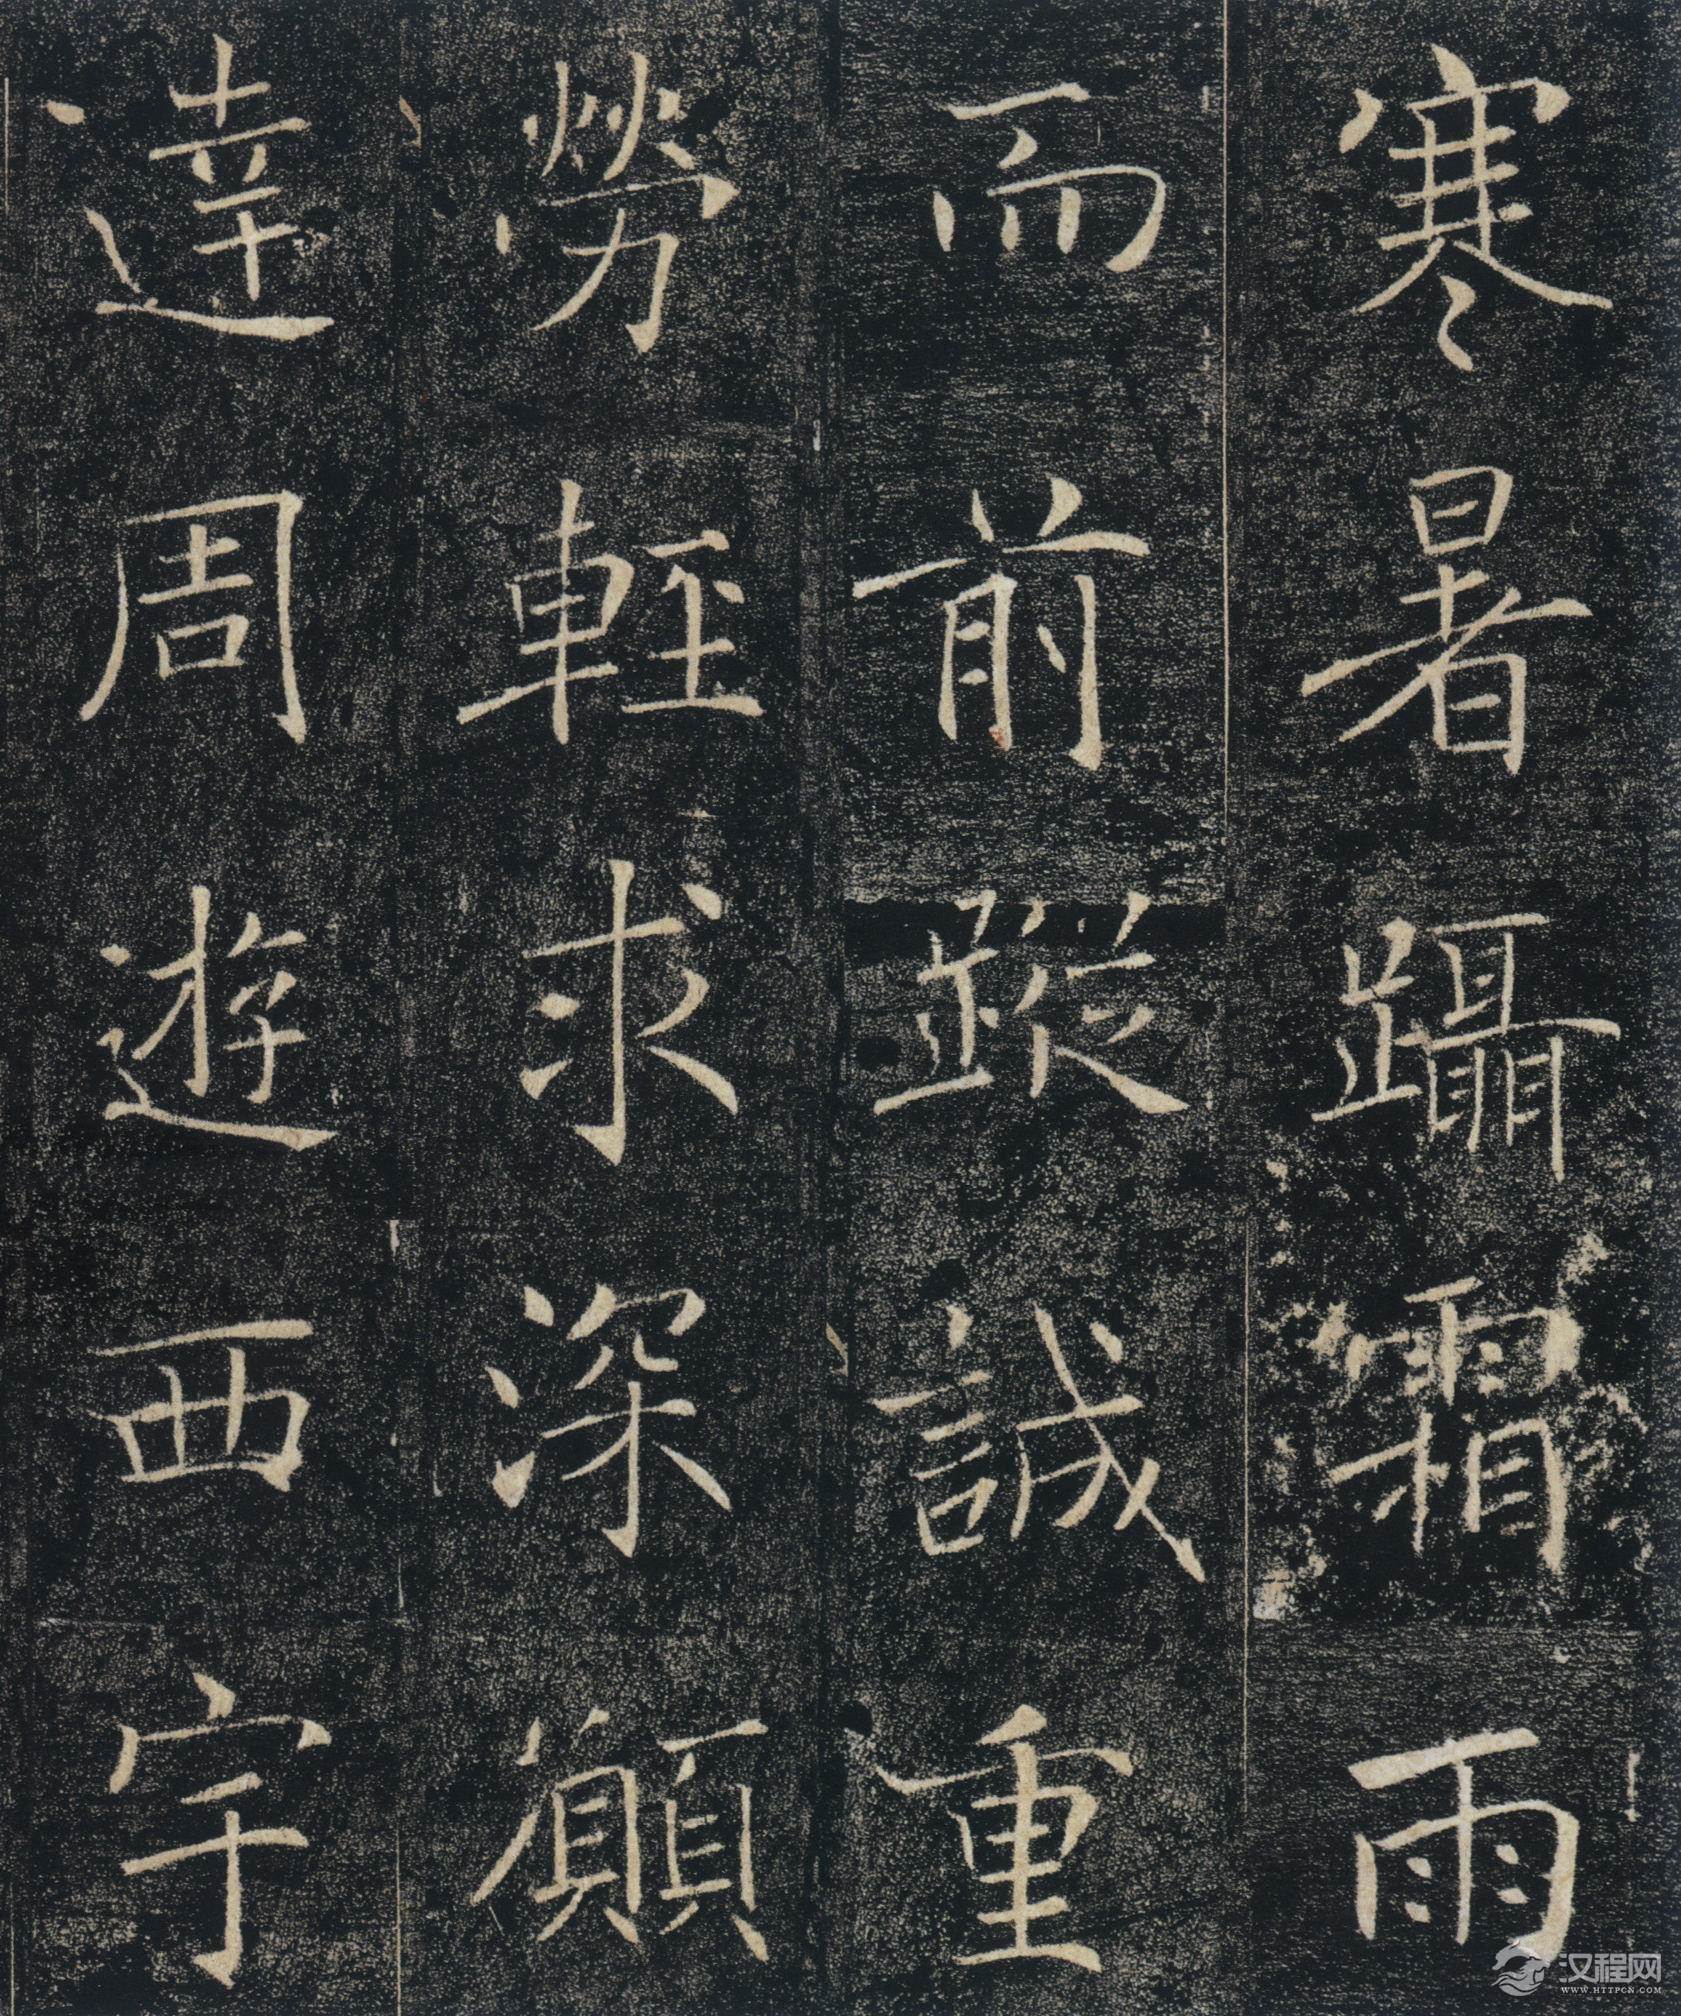 寒暑躡霜雨
而前蹤誠重
勞輕求深願
達周遊西宇
汉程网
WWW.HTTPCN.COM